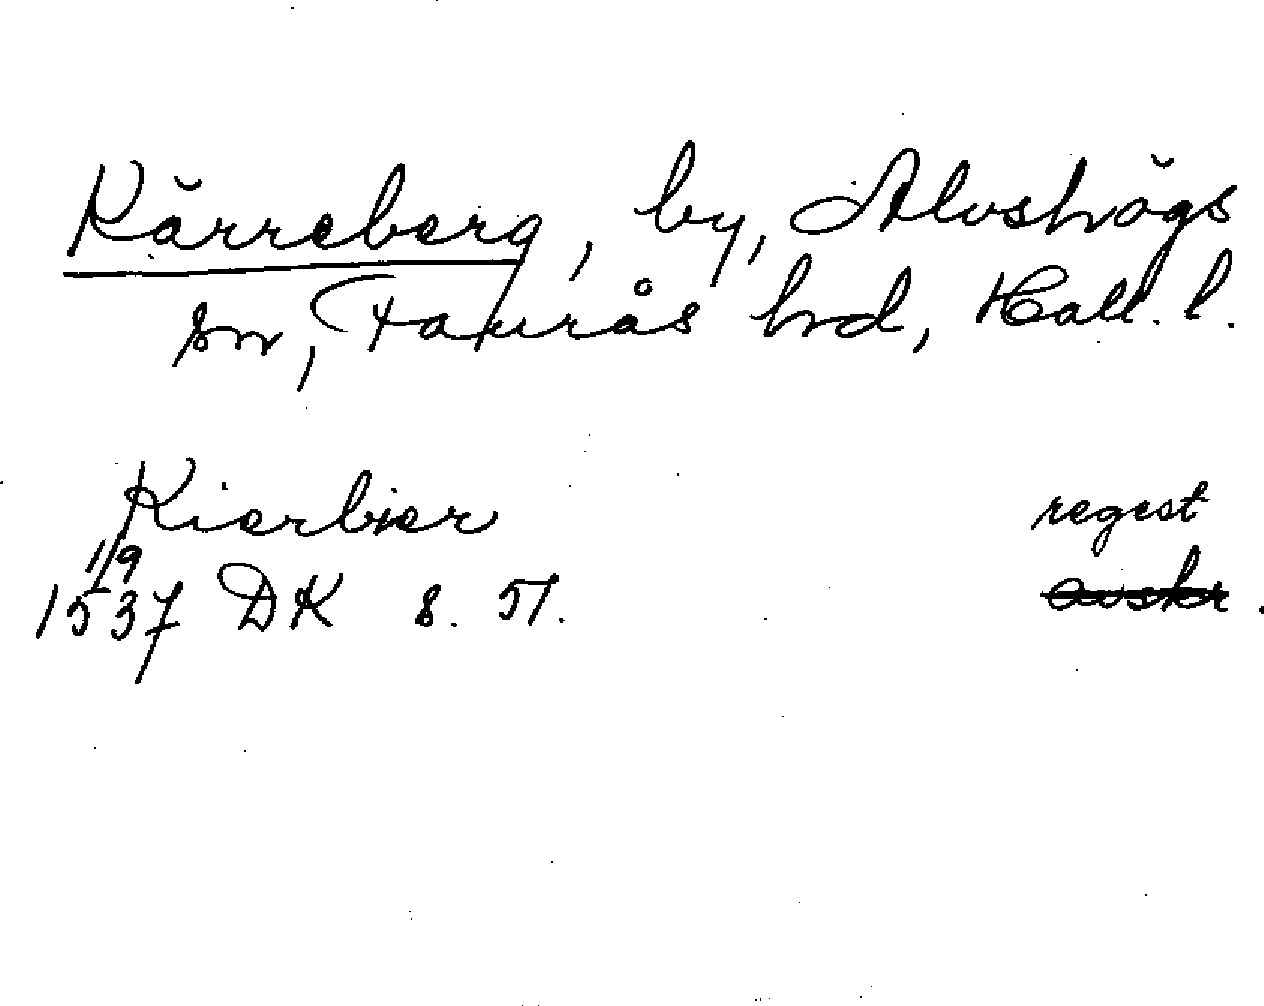 Kärreberg, by, Alvshögs
sn, Faurås hrd, Hall. l.
Kierbier regest
1/9
1537 DK 8. 51. avskr.